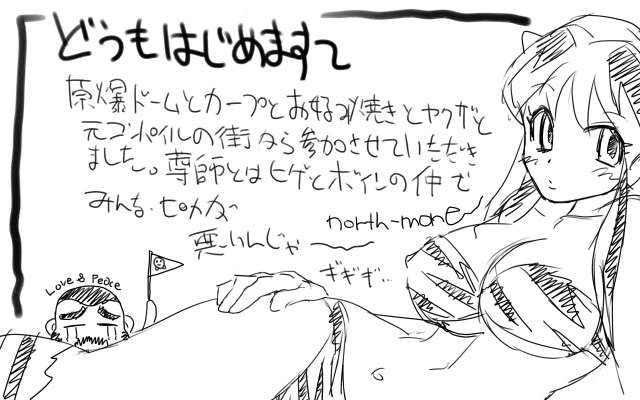 どうもはじめまして
原爆ドームとカープとお好み焼きとヤクザと
元コンパイルの街から参加させていただき
ました。尊師とはヒゲとボインの仲で
みんな・ピカが
悪いんじゃ
north-mone
ギギギ…
Love & Peace